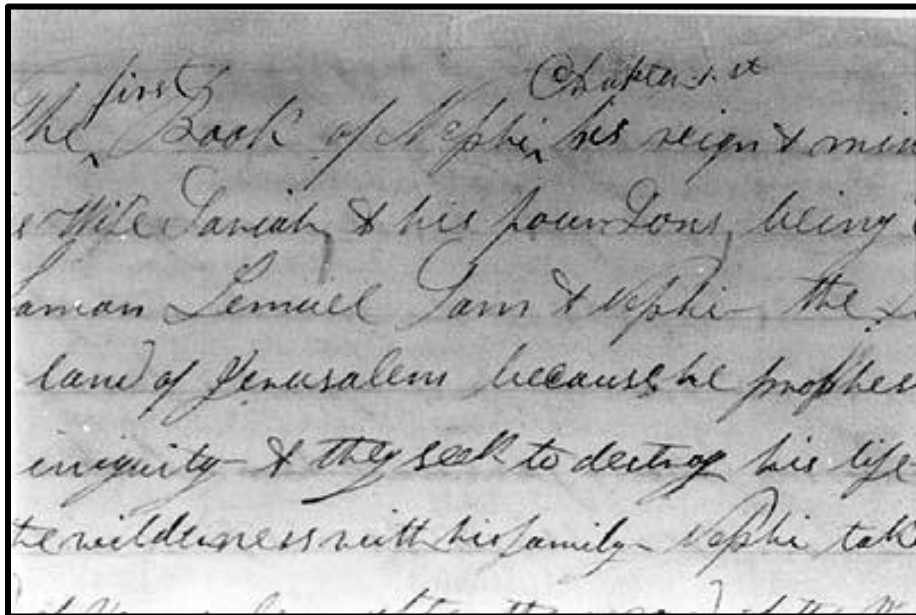 first Chapter 1.st
The Book of Nephi his reign & min
Wife Sariah, & his four Sons, being
aman Lemuel Sam & Nephi the
land of Jerusalem because he prophes
iniquity & they seek to destroy his life
the wilderness with his family Nephi take